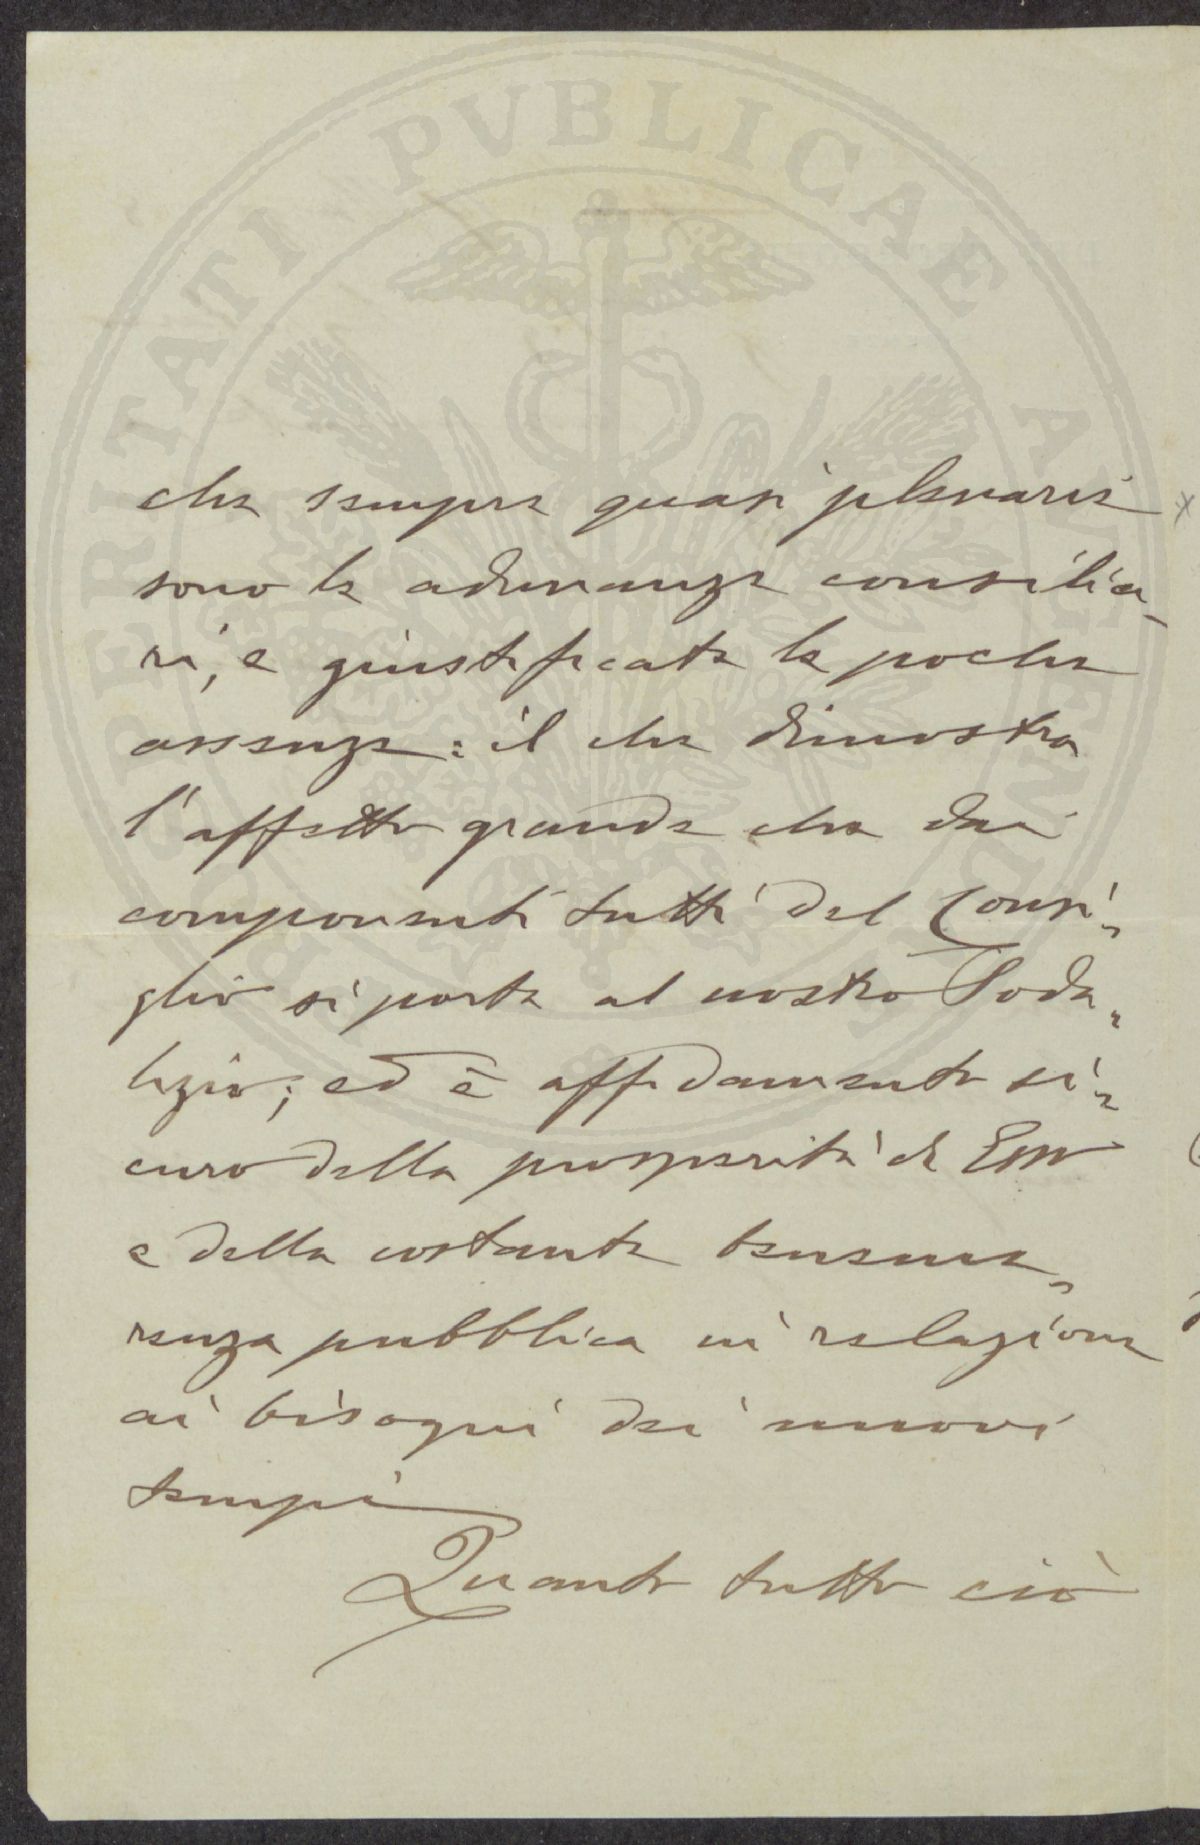 PROSPERITATI PVBLICAE AVGENDAE
che sempre quasi plenarie
sono le adunanze consilia-
ri, e giustificate le poche
assenze: il che dimostra
l'affetto grande che dai
componenti tutti del Consi-
glio si porta al nostro Soda-
lizio; ed è affidamento si-
curo della prosperità di Esso
e della costante beneme-
renza pubblica in relazione
ai bisogni dei nuovi
tempi
Quanto tutto ciò